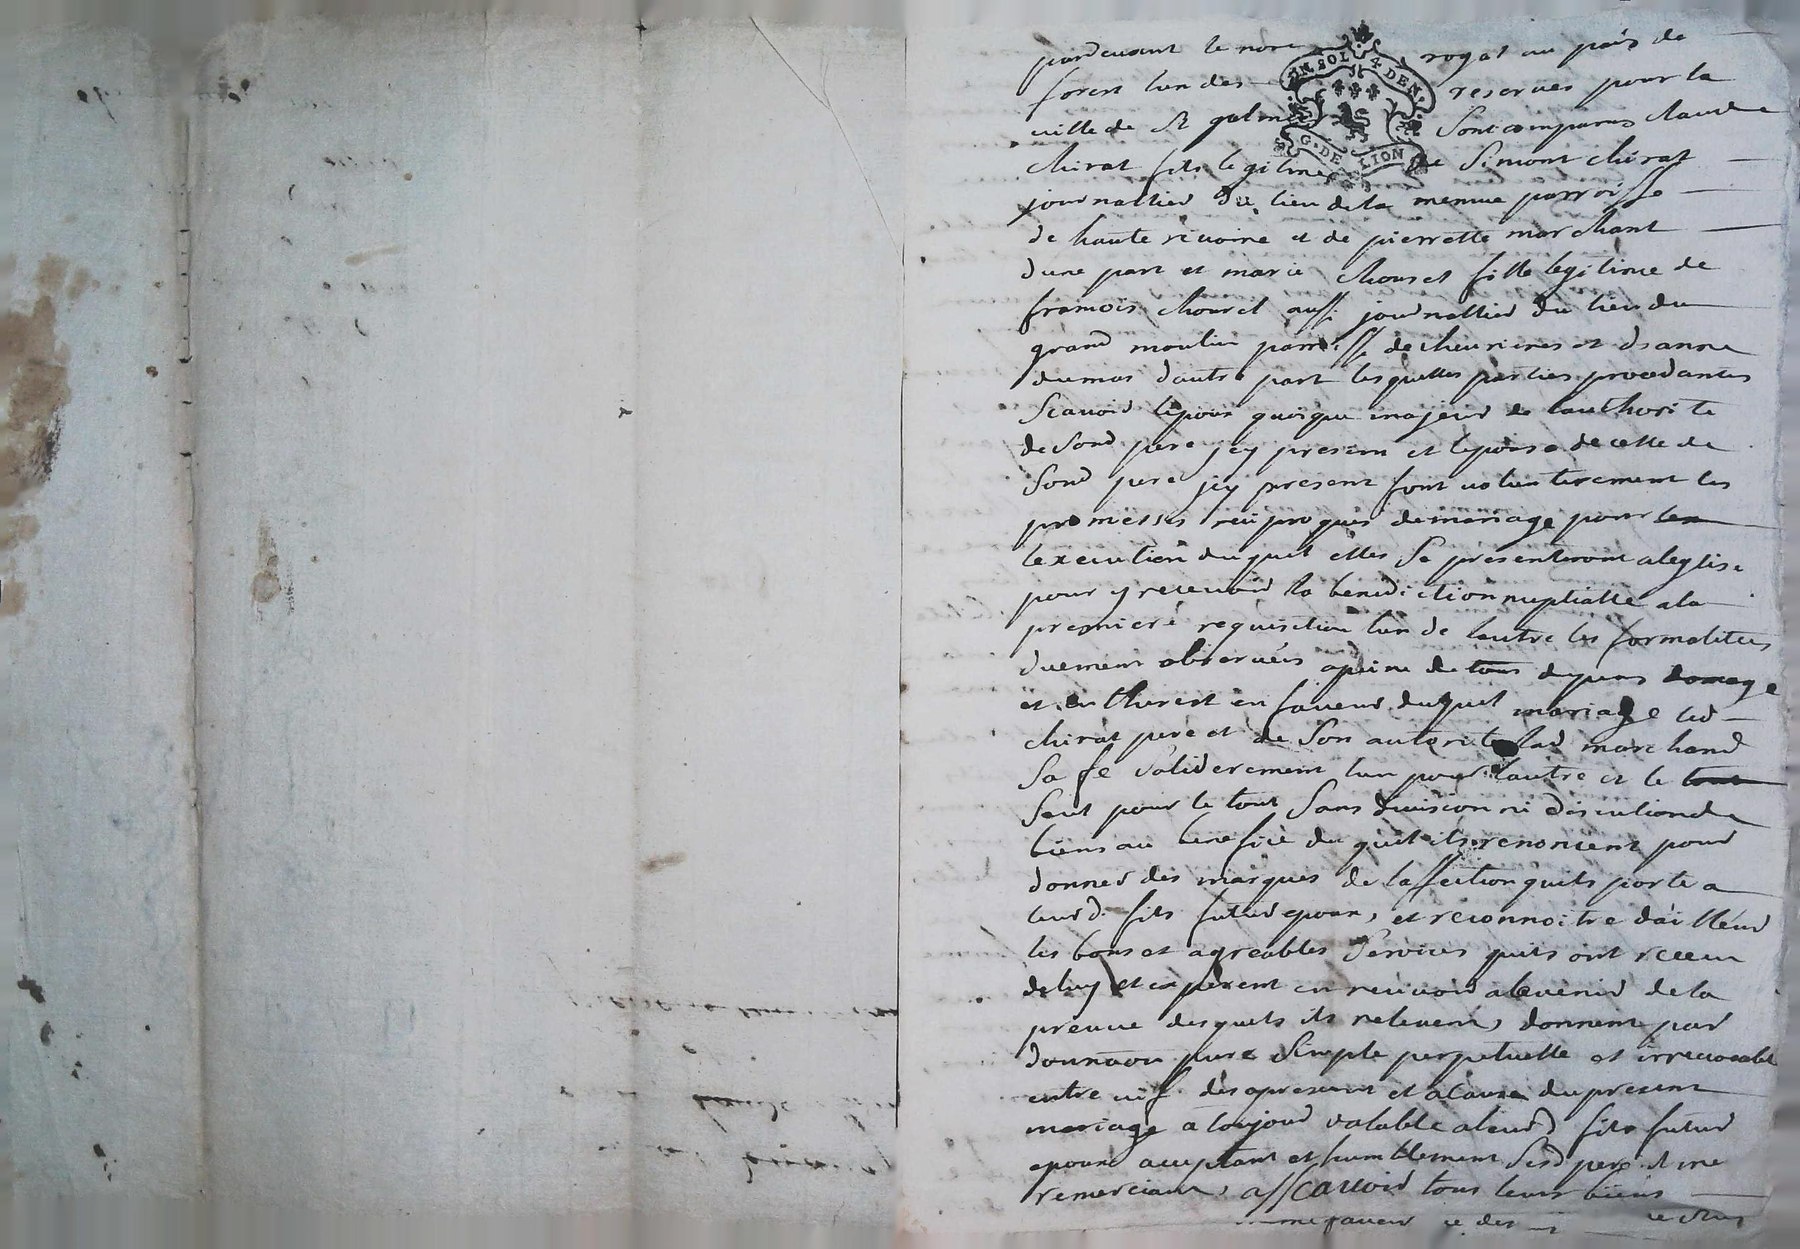 pardevant le nore royal au païs de
forest lun des reservés pour la
ville de St galmier Sont comparus Claude
chirat fils legitime de Simont chirat
journallier du lieu de la menue parroisse
de haute rivoire et de pierrette marchant
dune part et marie Chouret fille legitime de
francois chouret aussi journallier du lieu du
grand moulin parroisse de chevrieres et deanne
dumas dautre part lesquelles parties procedantes
Scavoir lepoux quoique majeur de lauthorite
de Sond pere jcy present et lepouse de celle de
Sond pere jcy present font volontierement les
promesses reciproques de mariage pour
lexecution duquel elles Se presenteront a leglise
pour y recevoir la benediction nuptialle a la
premiere requisition lun de lautre les formalitees
duement observées apeine de tous depens domage
et inthurest en faveur duquel mariage led
chirat pere et de Son autorite lad marchand
Sa fe Soliderement lun pour lautre et le
Seul pour le tout Sans division ni discution de
biens au benefice du quel ils renoncent pour
donner des marques de laffection quils porte a
leurd. fils futur epoux, et reconnoitre dailleur
les bons et agreables Services quils ont receu
de luy et esperent en recevoir alavenir de la
preuve desquels ils relevent, donnent par
donnaon pure Simple perpetuelle et irrevocable
entre vif. des apresent et a Cause du present
mariage a toujour valable a leurd fils futur
epoux acceptant et humblement Sesd pere et me
remerciant, assCavoir tous leurs biens